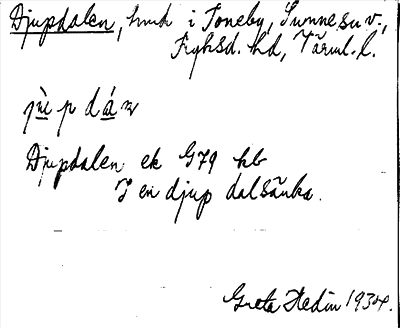 Djupdalen, hmd i Toneby, Sunne sv.,
Fryksd. hd, Värml. l.
jùp dán
Djupdalen ek G79 hb
I en djup dalsänka.
Greta Hedin 1934.